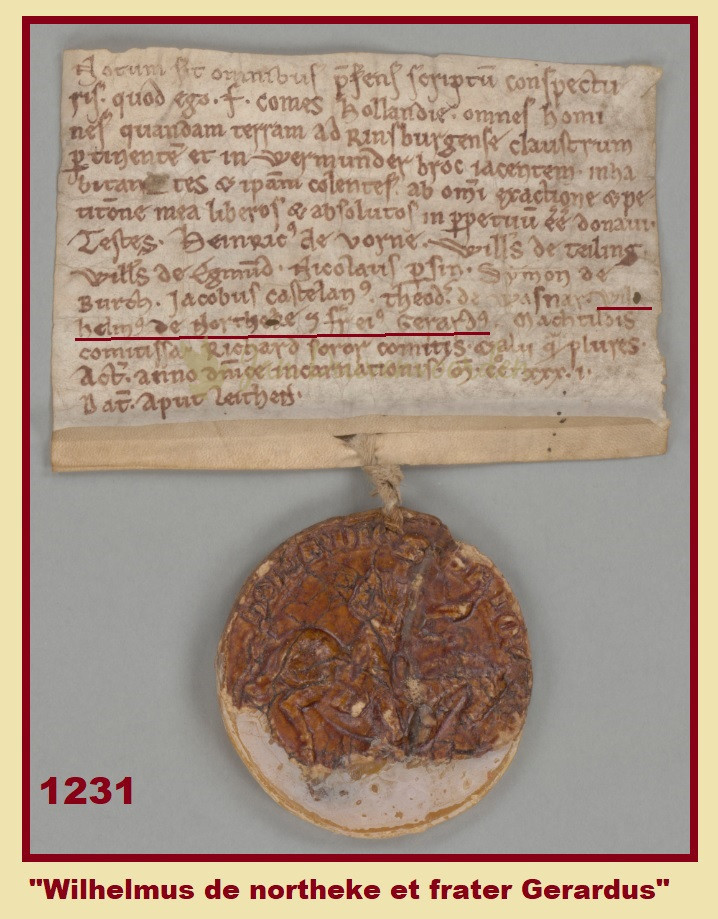 Notum sit omnibus p̄sens scriptū conspectu
ris. quod ego .f. comes hollandie. omnes homi
nes quandam terram ad Rinsburgense claustrum
ꝑtinentē et in Wermunder broc iacentem. inha
bitan tes & ipām colentes. ab om̄i exactione & pe
titōne mea liberos & absolutos in ꝑpetuū ēē donaui.
Testes. Heinricꝰ de vorne. Willꝰs de teiling.
Willꝰs de Egmūd. Nicolaus ꝑsin. Symon de
Burch. Jacobus castelanꝰ. theodꝰ. de Wasnar. Wil
helmꝰ de Northeke ⁊ fr̄ eiꝰ Gerardꝰ. Machtildis
comitissa. Richard soror comitis. & alii plures.
Act. anno dn̄ice incarnationis. M̊. cc̊. xxx. i.
Dat̄. Aput leithen.
1231
"Wilhelmus de northeke et frater Gerardus"